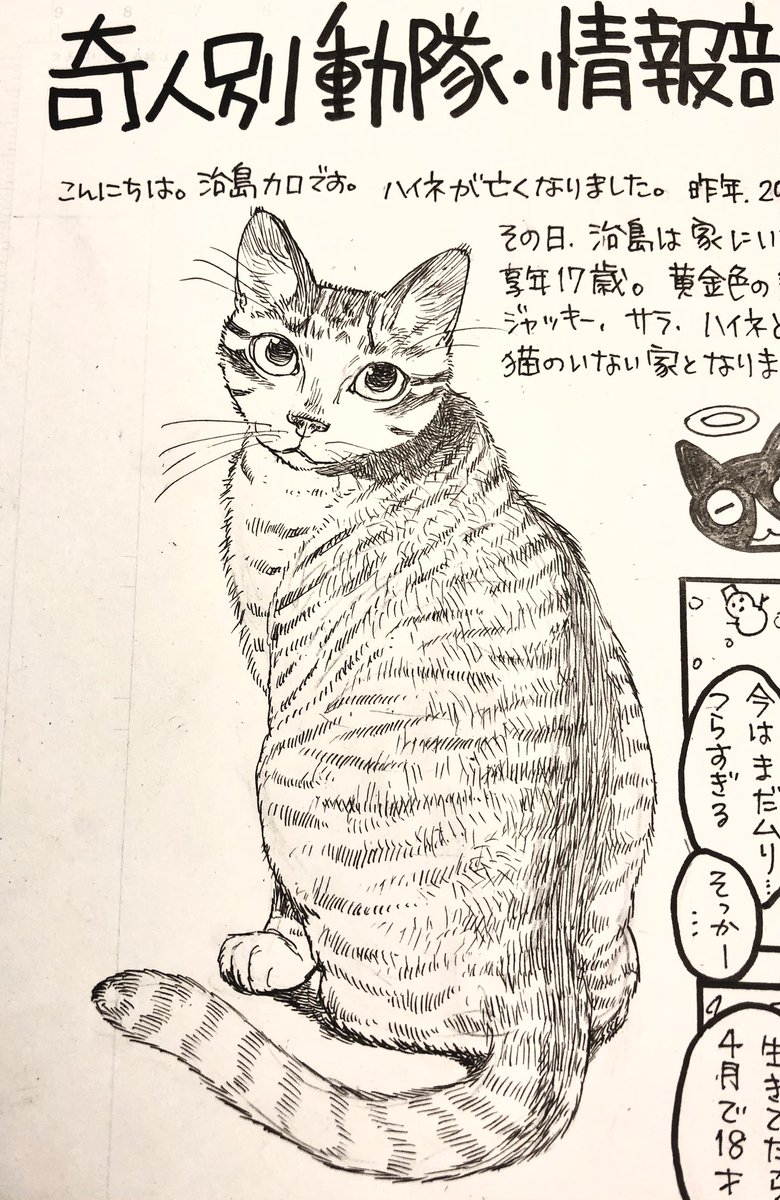 奇人別動隊・情報部
こんにちは。治島カロです。 ハイネが亡くなりました。 昨年、20
その日、治島は家にい
享年17歳。 黄金色の
ジャッキー、サラ、ハイネと
猫のいない家となりま
今はまだムリ…
つらすぎる
そっかー
…
生きてたら
4月で18才